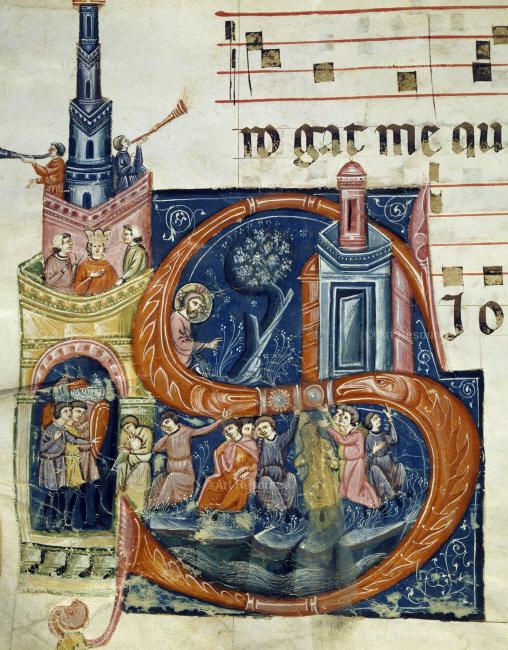 rogat me qu
Jo